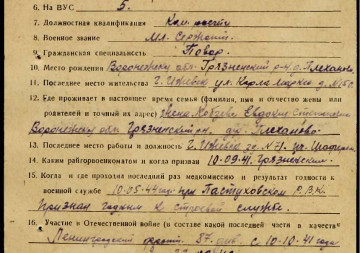 6. На ВУС 5.
7. Должностная квалификация Ком. части
8. Военное звание Мл. Сержант
9. Гражданская специальность Повар
10. Место рождения Воронежская обл. Грязненский р-н д. Плеханово
11. Последнее место жительства г. Ижевск ул. Карла Маркса
12. Где проживает в настоящее время семья (фамилия, имя и отчество жены или
родителей и точный их адрес) Жена Евдокия
Воронежская обл. Грязненский Плеханово
13. Последнее место работы и должность г. Ижевск №71
14. Каким райгорвоенкоматом и когда призван 10.09.41. Грязненским
15. Когда и где проходил последний раз медкомиссию и результат годности к
военной службе 10-05-44 при Пастуховском Р.В.К.
признан годным к строевой службе.
16. Участие в Отечественной войне (в составе какой последней части и в качестве
Ленинградский фронт. с 10-10-41 года